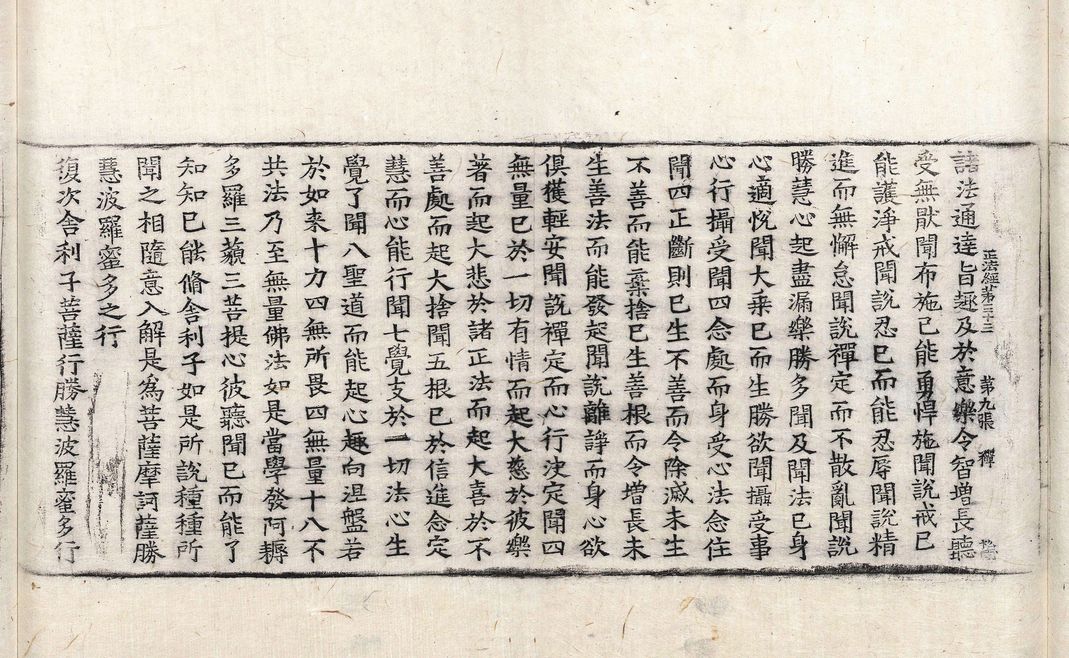 諸法通達旨趣及於意樂令智增長聽
正法經第三十三 第九張 禪
受無猒聞布施已能勇悍施聞說戒已
能護淨戒聞說忍已而能忍辱聞說精
進而無懈怠聞說禪定而不散亂聞說
勝慧心起盡漏樂勝多聞及聞法已身
心適悅聞大乘已而生勝欲聞攝受事
心行攝受聞四念處而身受心法念住
聞四正斷則已生不善而令除滅未生
不善而能棄捨已生善根而令增長未
生善法而能發起聞說離諍而身心欲
俱獲輕安聞說禪定而心行決定聞四
無量已於一切有情而起大慈於彼樂
著而起大悲於諸正法而起大喜於不
善處而起大捨聞五根已於信進念定
慧而心能行聞七覺支於一切法心生
覺了聞八聖道而能起心趣向涅盤若
於如来十力四無所畏四無量十八不
共法乃至無量佛法如是當學發阿耨
多羅三藐三菩提心彼聽聞已而能了
知知已能脩舍利子如是所說種種所
聞之相隨意入解是為菩薩摩訶薩勝
慧波羅蜜多之行
復次舍利子菩薩行勝慧波羅蜜多行